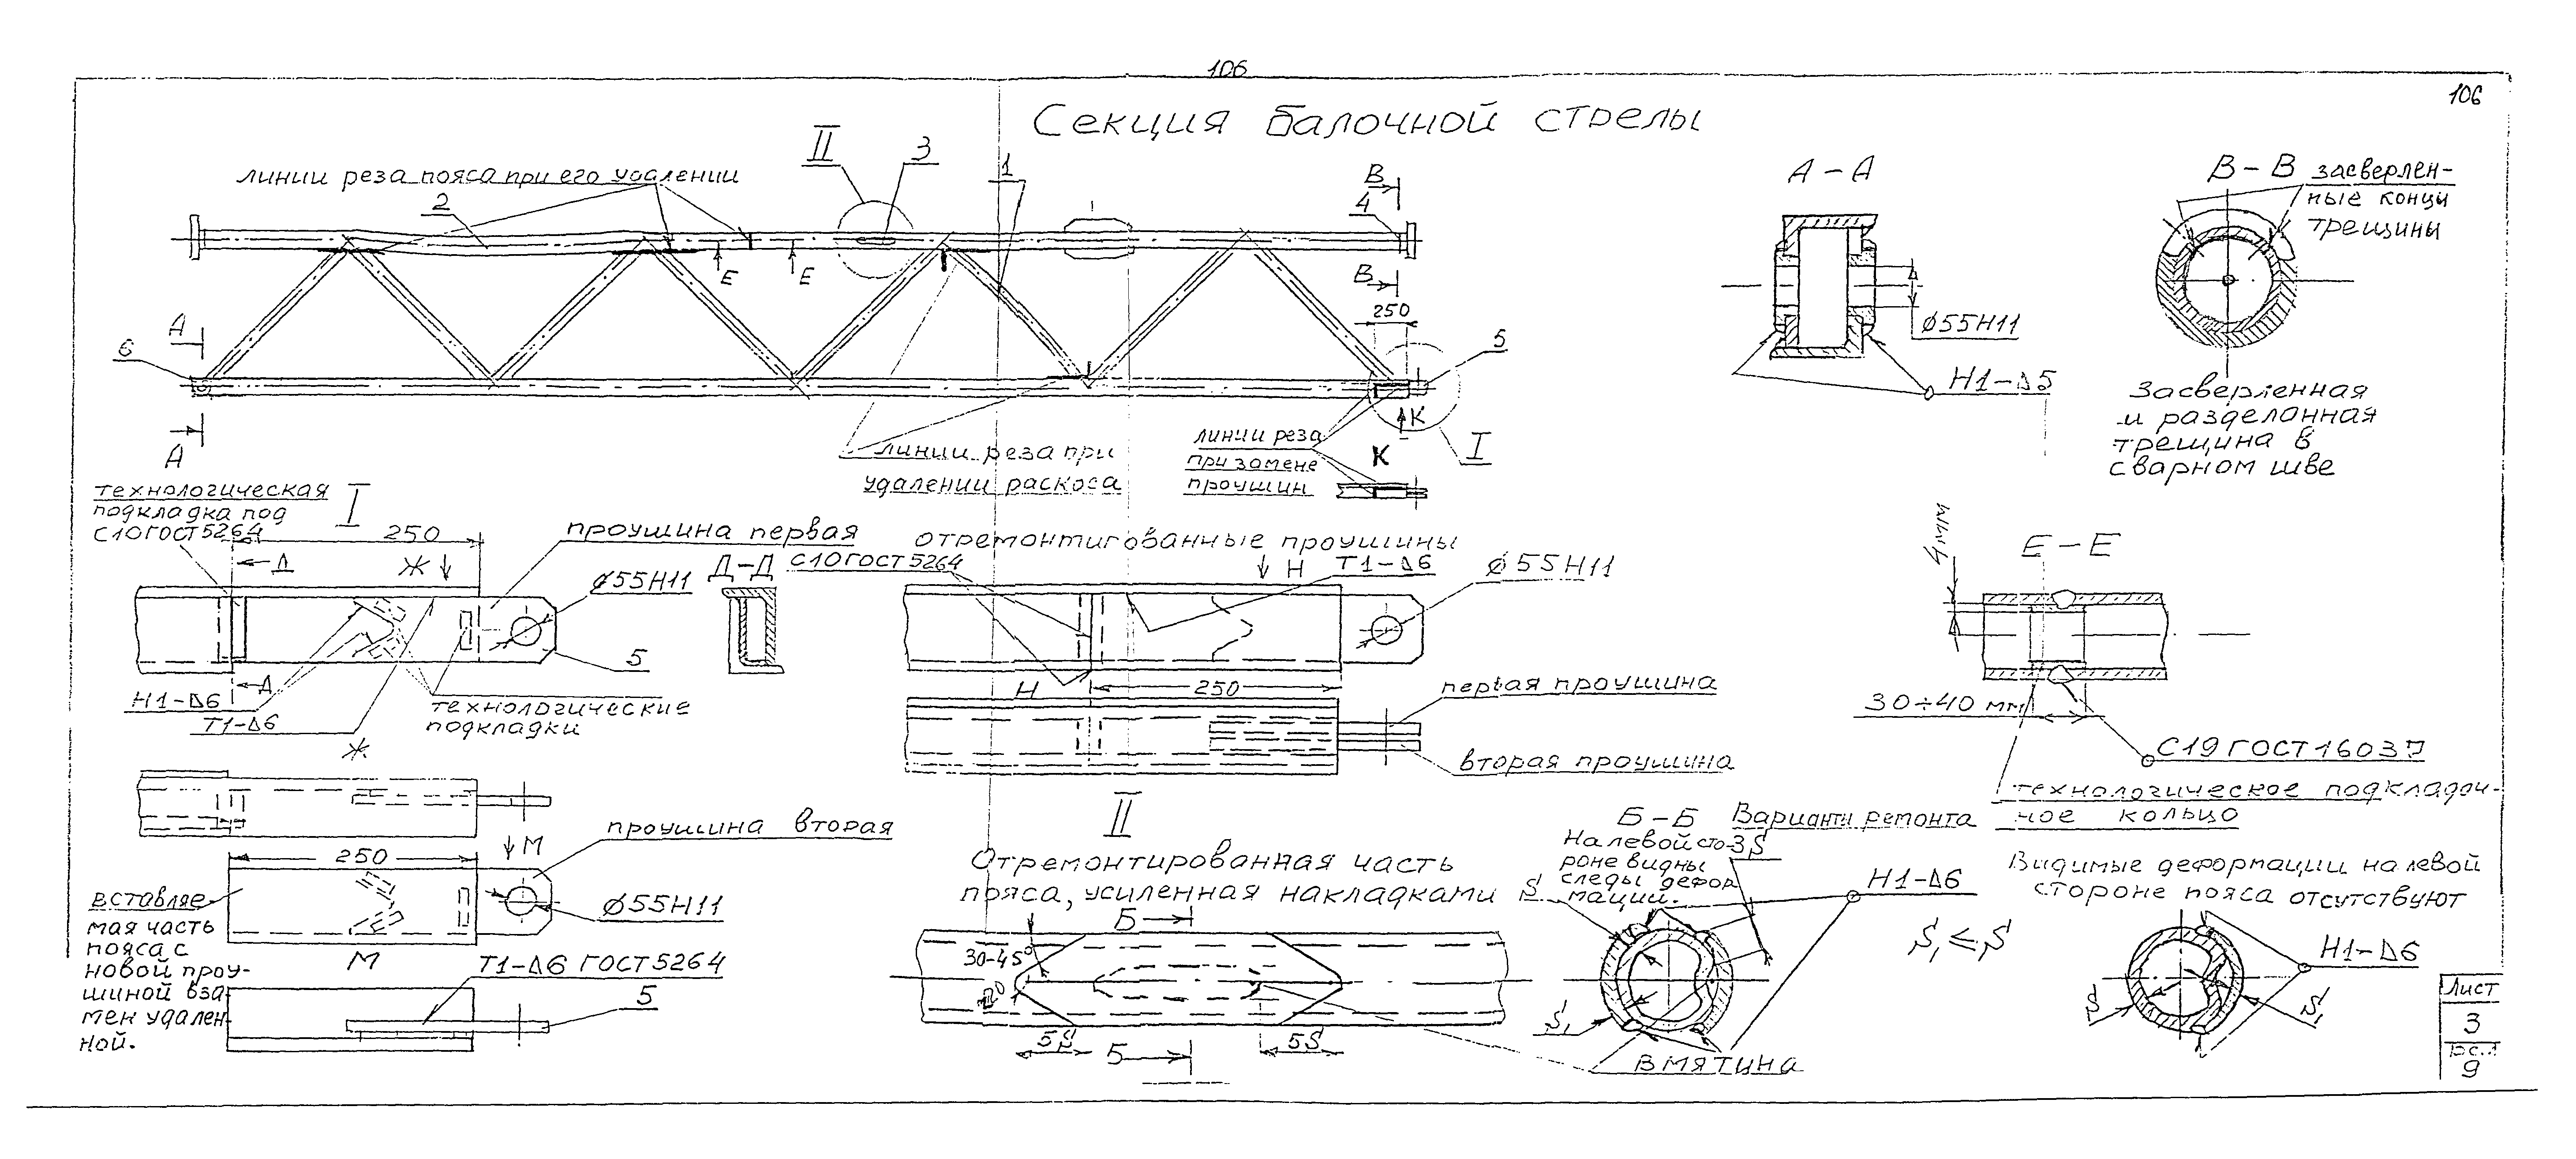 106
106
Секция балочной стрелы
линии реза пояса при его удалении
II
3
1
2
В
4
Е
Е
В
250
А
6
5
А
К
I
линии реза при
удалении раскоса
линии реза
при замене
проушин
К
А – А
ϕ55Н11
Н1–Δ5
В – В
засверлен-
ные концы
трещины
Засверленная
и разделанная
трещина в
сварном шве
технологическая
подкладка под
С10 ГОСТ 5264
I
250
Д
Ж
проушина первая
ϕ55Н11
5
Д
Н1–Δ6
Т1–Δ6
Ж
технологические
подкладки
Д–Д
отремонтированные проушины
С10 ГОСТ 5264
Н
Т1–Δ6
ϕ55Н11
Н
250
первая проушина
вторая проушина
4мм
Е – Е
30÷40 мм
С19 ГОСТ 16037
технологическое подкладоч-
ное кольцо
М
проушина вторая
250
ϕ55Н11
вставляе-
мая часть
пояса с
новой проу-
шиной вза-
мен удален-
ной.
М
Т1–Δ6 ГОСТ 5264
5
II
Отремонтированная часть
пояса, усиленная накладками
Б
30-45°
5S
Б
5S
Б – Б
Варианты ремонта
На левой сто-
роне видны
следы дефор
мации.
3S
S
S₁
Н1–Δ6
вмятина
Видимые деформации на левой
стороне пояса отсутствуют
S₁ ≤ S
Н1–Δ6
S
S₁
Лист
3
9